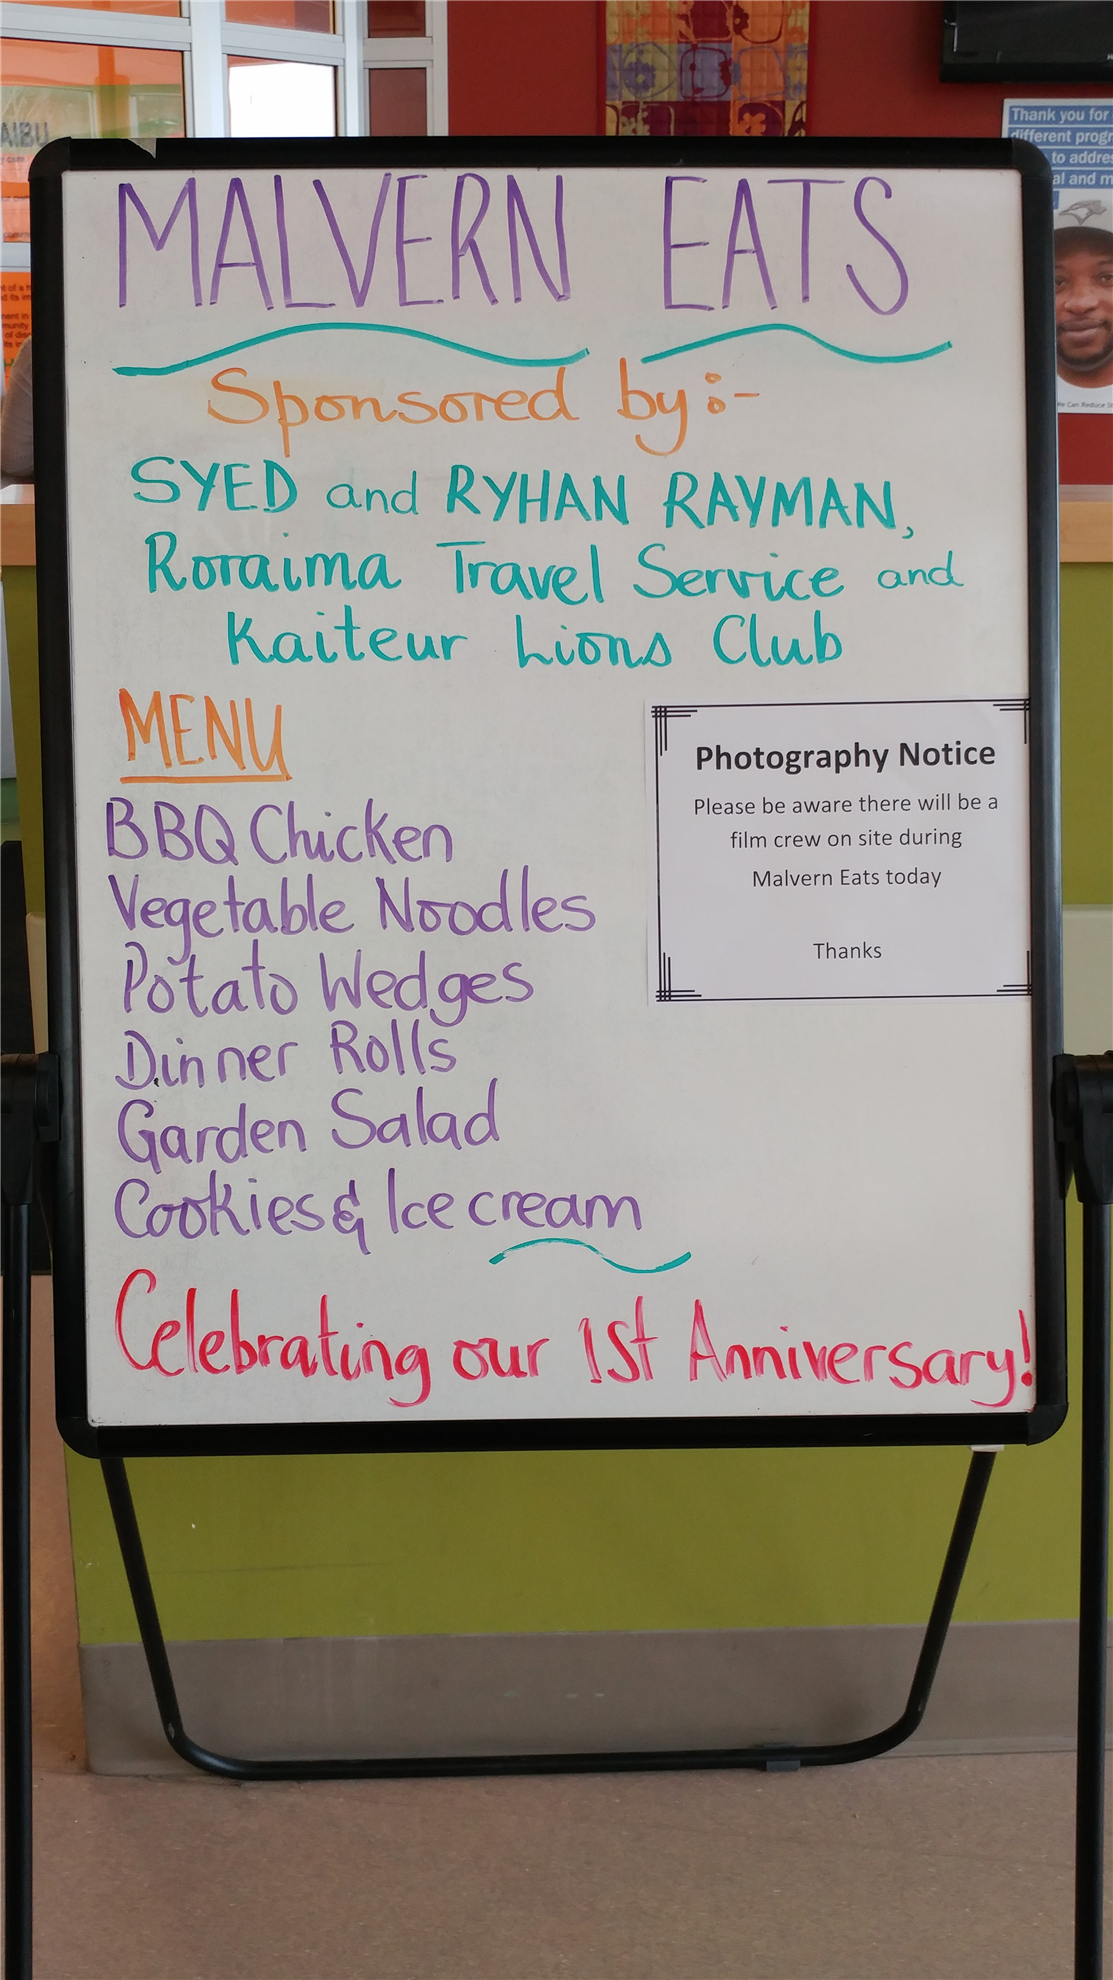 MALVERN EATS
Sponsored by:-
SYED and RYHAN RAYMAN,
Roraima Travel Service and
Kaiteur Lions Club
MENU
BBQ Chicken
Vegetable Noodles
Potato Wedges
Dinner Rolls
Garden Salad
Cookies & Ice cream
Celebrating our 1st Anniversary!
Photography Notice
Please be aware there will be a
film crew on site during
Malvern Eats today
Thanks
Thank you for
different progr
to addres
al and m
We Can Reduce St
AIBU